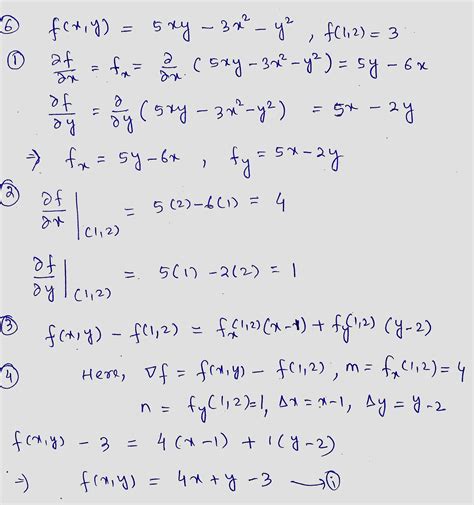 ⑥ f(x,y) = 5xy - 3x² - y² , f(1,2) = 3
① ∂f/∂x = fx = ∂/∂x (5xy - 3x² - y²) = 5y - 6x
∂f/∂y = ∂/∂y (5xy - 3x² - y²) = 5x - 2y
⇒ fx = 5y - 6x , fy = 5x - 2y
② ∂f/∂x |(1,2) = 5(2) - 6(1) = 4
∂f/∂y |(1,2) = 5(1) - 2(2) = 1
③ f(x,y) - f(1,2) = fx(1,2)(x-1) + fy(1,2) (y-2)
④ Here, ∇f = f(x,y) - f(1,2) , m = fx(1,2) = 4
n = fy(1,2)=1, Δx = x-1, Δy = y-2
f(x,y) - 3 = 4(x-1) + 1(y-2)
⇒ f(x,y) = 4x + y - 3 → ①